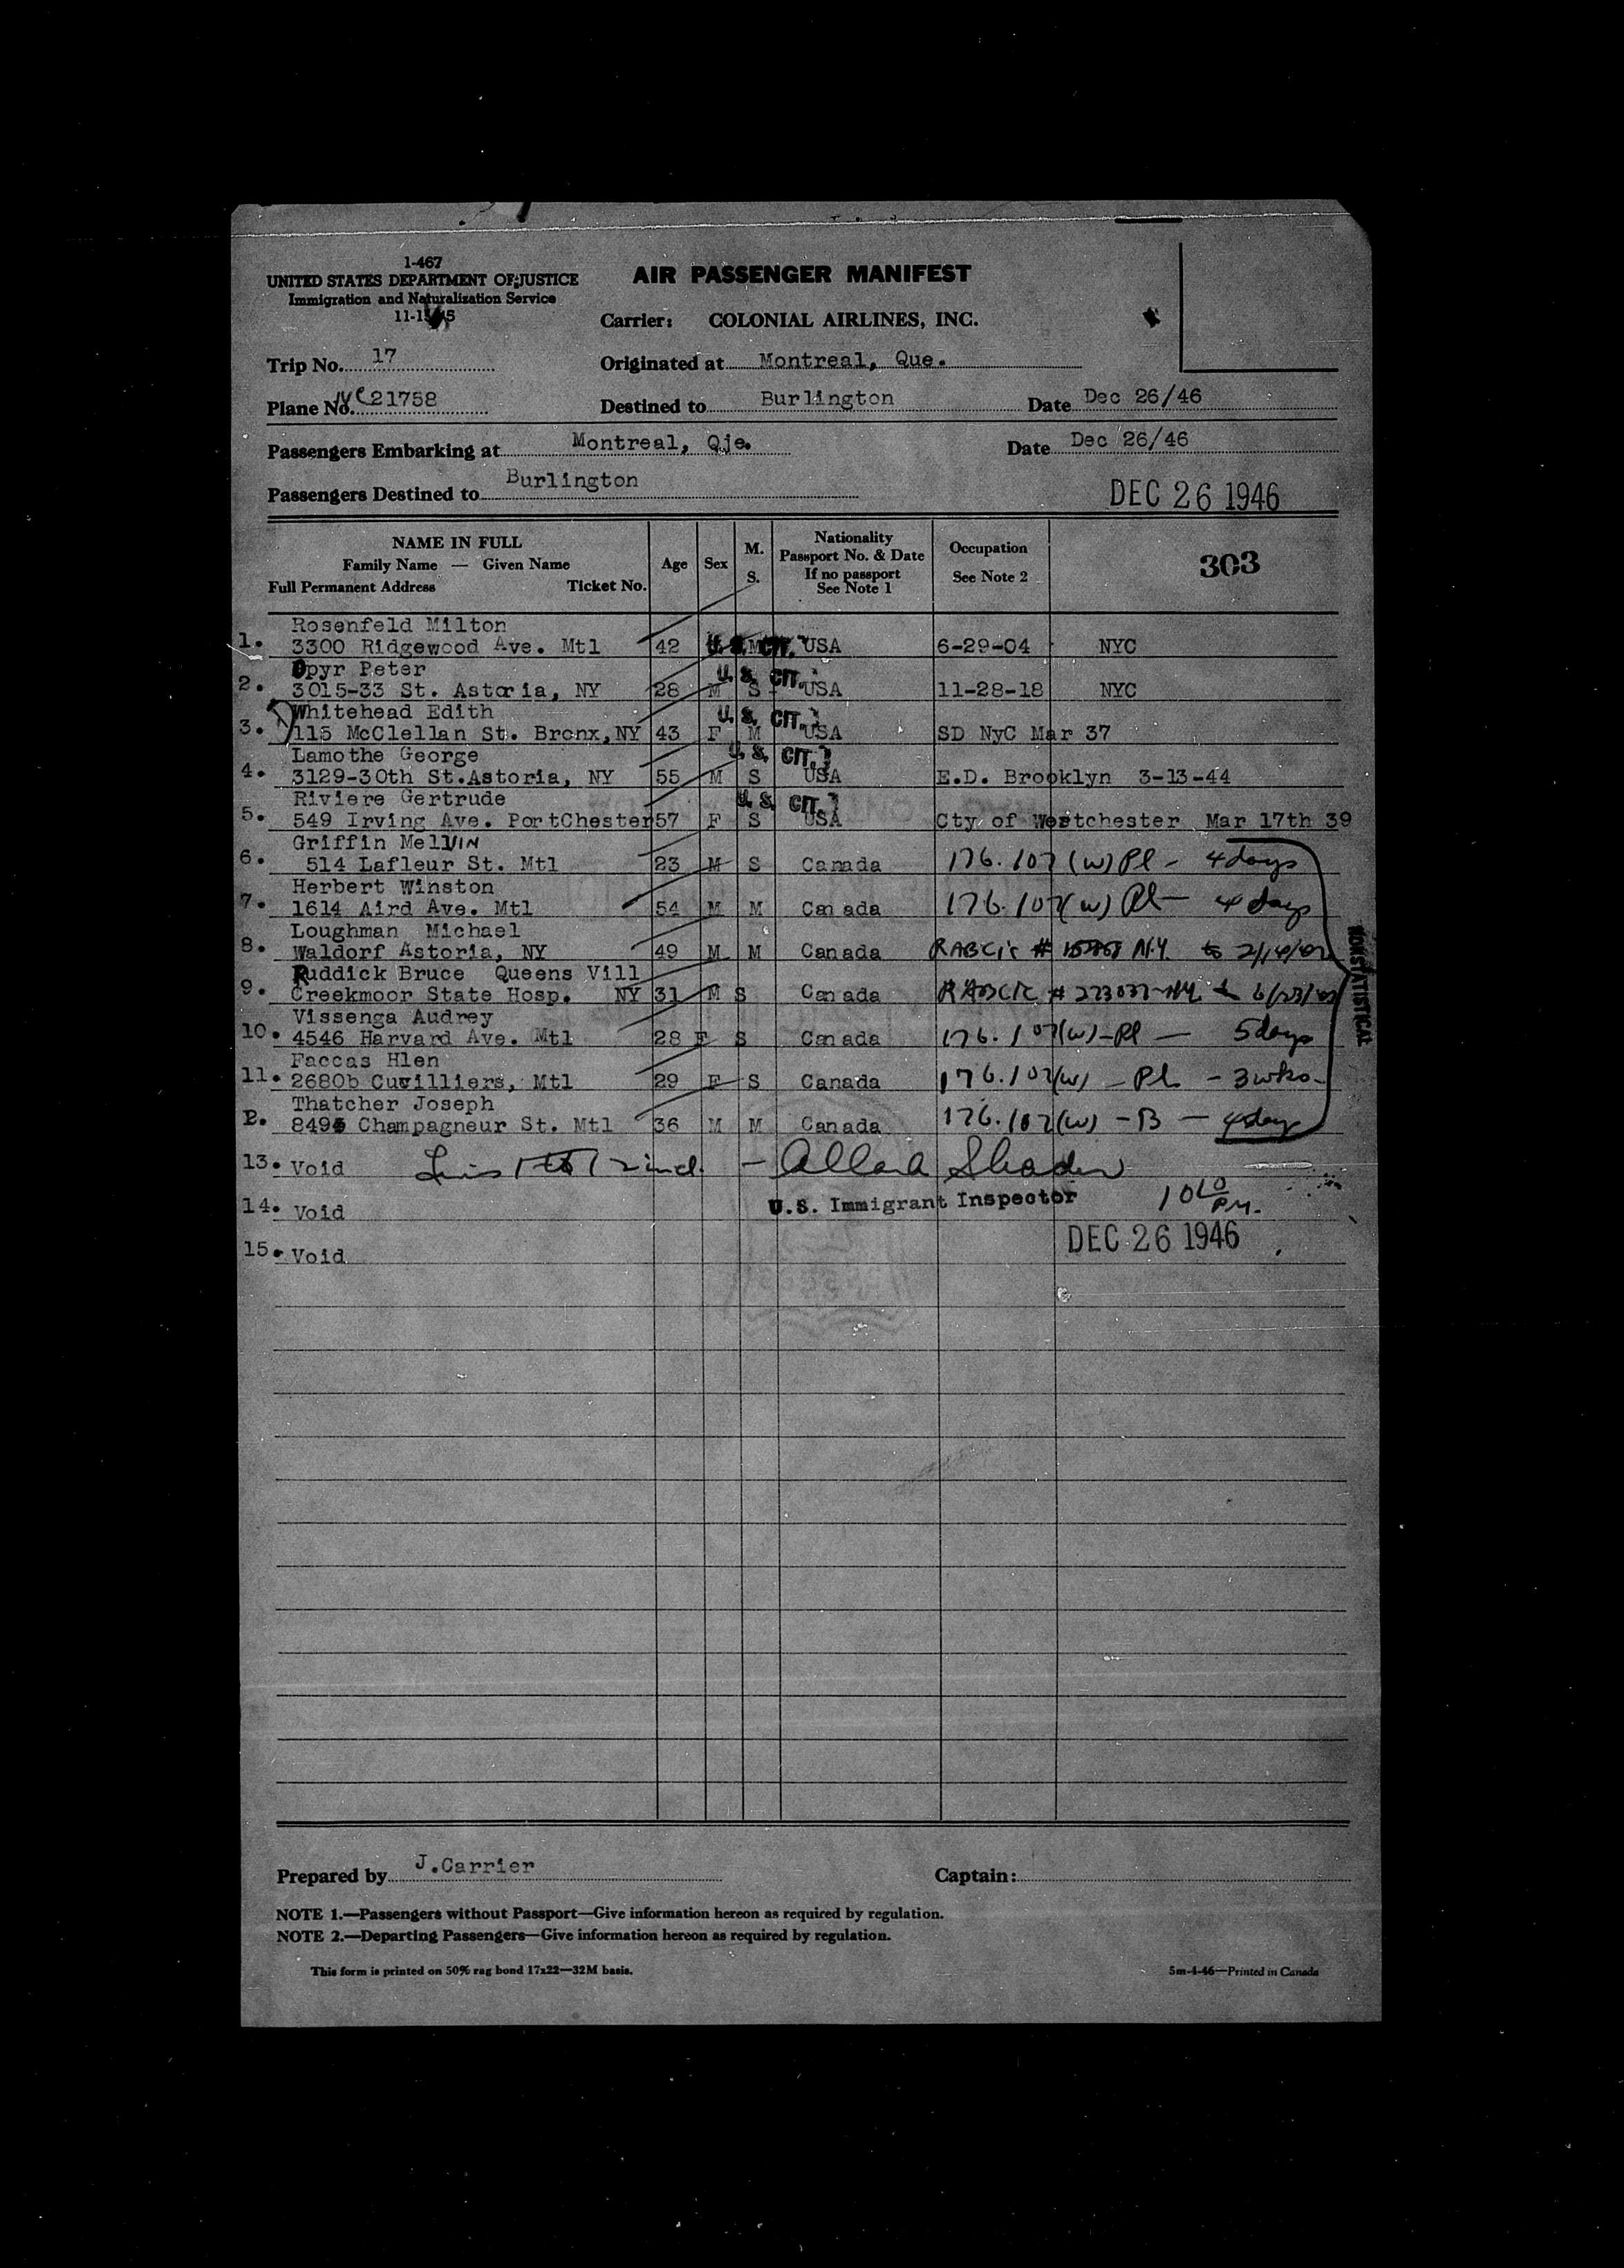 1-467
UNITED STATES DEPARTMENT OF JUSTICE
Immigration and Naturalization Service
AIR PASSENGER MANIFEST
Carrier: COLONIAL AIRLINES, INC.
Trip No. 17
Originated at Montreal, Que.
Plane No. NC21758
Destined to Burlington Date Dec 26/46
Passengers Embarking at Montreal, Qje. Date Dec 26/46
Passengers Destined to Burlington
DEC 26 1946
NAME IN FULL
Family Name — Given Name
Full Permanent Address Ticket No.
Age Sex M. S.
Nationality
Passport No. & Date
If no passport
See Note 1
Occupation
See Note 2
303
Rosenfeld Milton
1. 3300 Ridgewood Ave. Mtl 42 U. S. CIT. M USA 6-29-04 NYC
Opyr Peter U. S. CIT.
2. 3015-33 St. Astoria, NY 28 M S USA 11-28-18 NYC
Whitehead Edith U. S. CIT.
3. 115 McClellan St. Bronx, NY 43 F M USA SD NyC Mar 37
Lamothe George U. S. CIT.
4. 3129-30th St.Astoria, NY 55 M S USA E.D. Brooklyn 3-13-44
Riviere Gertrude U. S. CIT.
5. 549 Irving Ave. PortChester 57 F S USA Cty of Westchester Mar 17th 39
Griffin Melvin
6. 514 Lafleur St. Mtl 23 M S Canada 176.107 (W) Pl - 4 days
Herbert Winston
7. 1614 Aird Ave. Mtl 54 M M Canada 176.107(W) Pl - 4 days
Loughman Michael
8. Waldorf Astoria, NY 49 M M Canada RABCIC # N.Y.
Ruddick Bruce Queens Vill
9. Creekmoor State Hosp. NY 31 M S Canada RABCIC #
Vissenga Audrey
10. 4546 Harvard Ave. Mtl 28 F S Canada 176.107(W) - Pl — 5 days
Faccas Hlen
11. 2680b Cuvilliers, Mtl 29 F S Canada 176.107(W) - Pl - 3 wks
Thatcher Joseph
12. 8495 Champagneur St. Mtl 36 M M Canada 176.107(W) - B - 4 days
NONSTATISTICAL
13. Void
U.S. Immigrant Inspector
14. Void
10 10 P.M.
DEC 26 1946
15. Void
Prepared by J.Carrier
Captain:
NOTE 1.—Passengers without Passport—Give information hereon as required by regulation.
NOTE 2.—Departing Passengers—Give information hereon as required by regulation.
This form is printed on 50% rag bond 17x22—32M basis.
5m-4-46—Printed in Canada